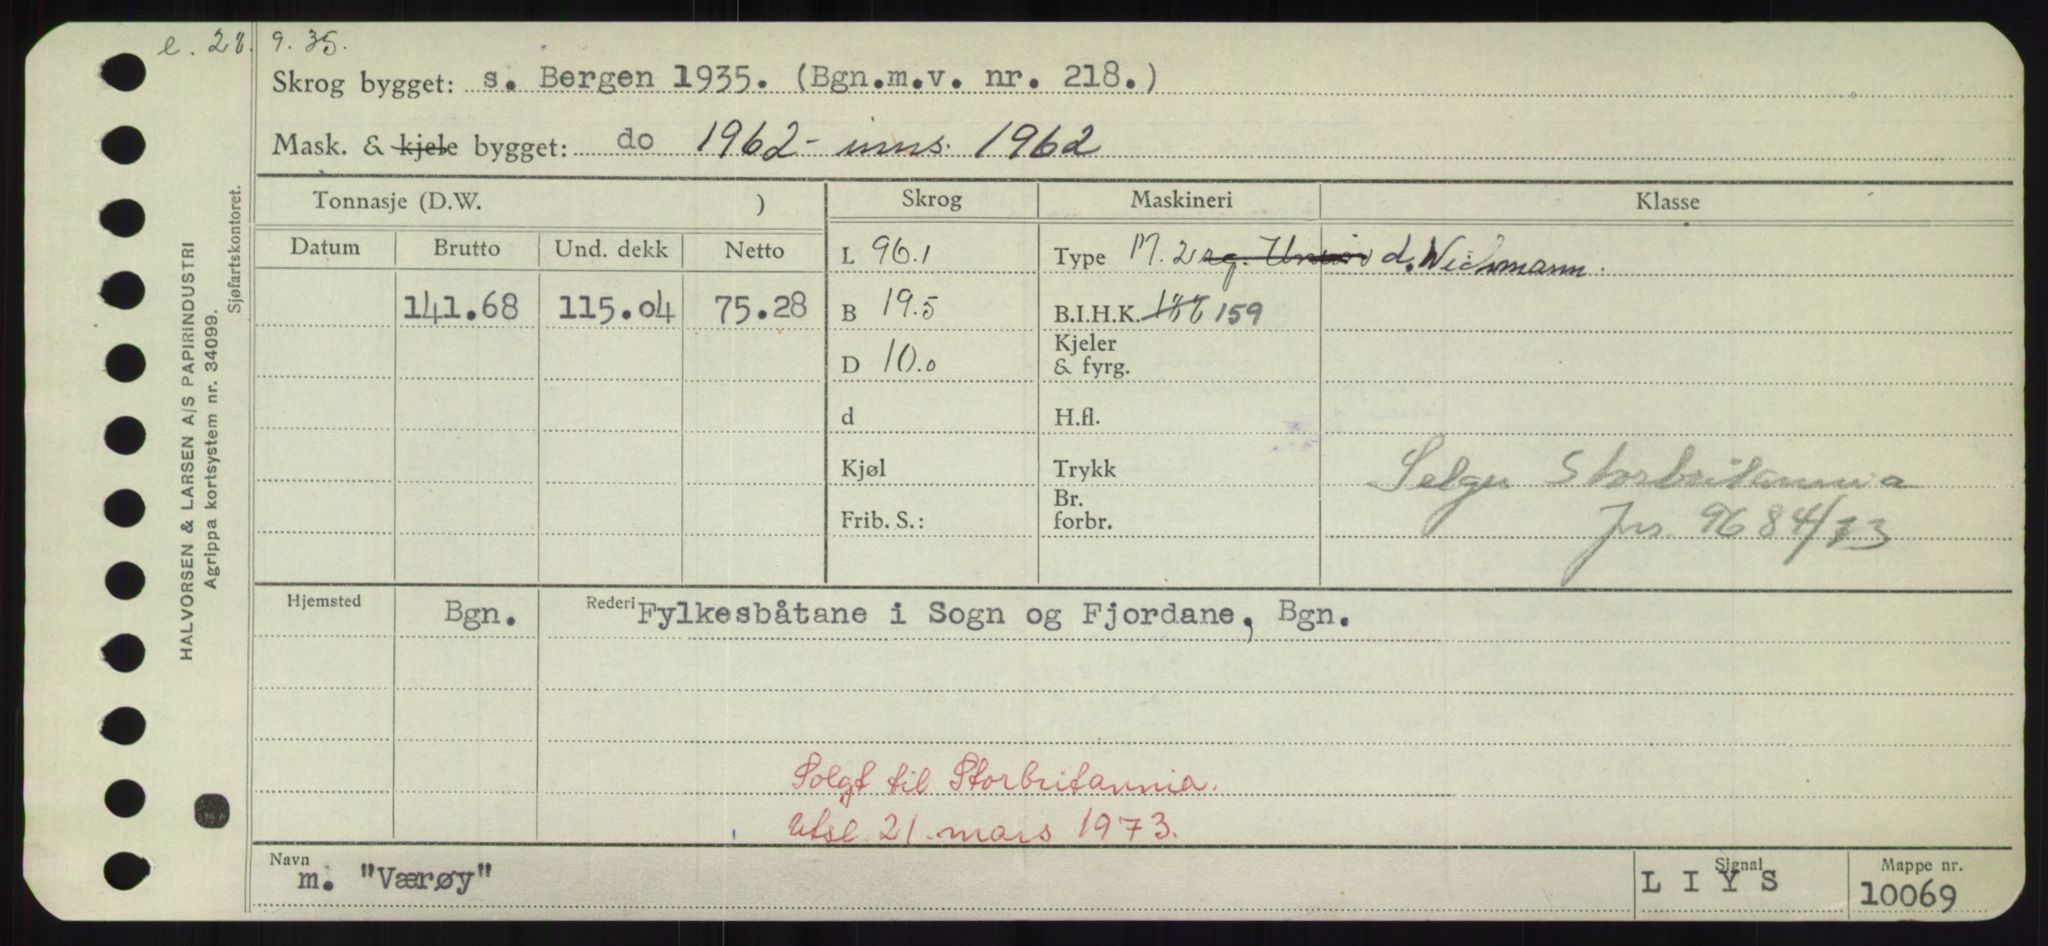 e. 28. 9. 35.
Skrog bygget: s. Bergen 1935. (Bgn.m.v. nr. 218.)
Mask. & kjele bygget: do 1962 - inns. 1962
Tonnasje (D.W. ) Skrog Maskineri Klasse
Datum Brutto Und. dekk Netto L 96.1 Type M. 2 sg. Union d. Wichmann.
141.68 115.04 75.28 B 19.5 B.I.H.K. 159
Kjeler
D 10.0 & fyrg.
d H.fl.
Kjøl Trykk Selges Storbritannia
Br.
Frib. S.: forbr. Jns. 9684/73
Hjemsted Bgn. Rederi Fylkesbåtane i Sogn og Fjordane, Bgn.
Solgt til Storbritannia.
Utsl. 21. mars 1973.
Navn Signal Mappe nr.
m. "Værøy" L I Y S 10069
HALVORSEN & LARSEN A/S PAPIRINDUSTRI
Agrippa kortsystem nr. 34099.
Sjøfartskontoret.